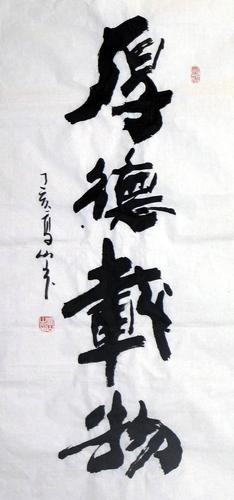 厚德載物
丁亥高山